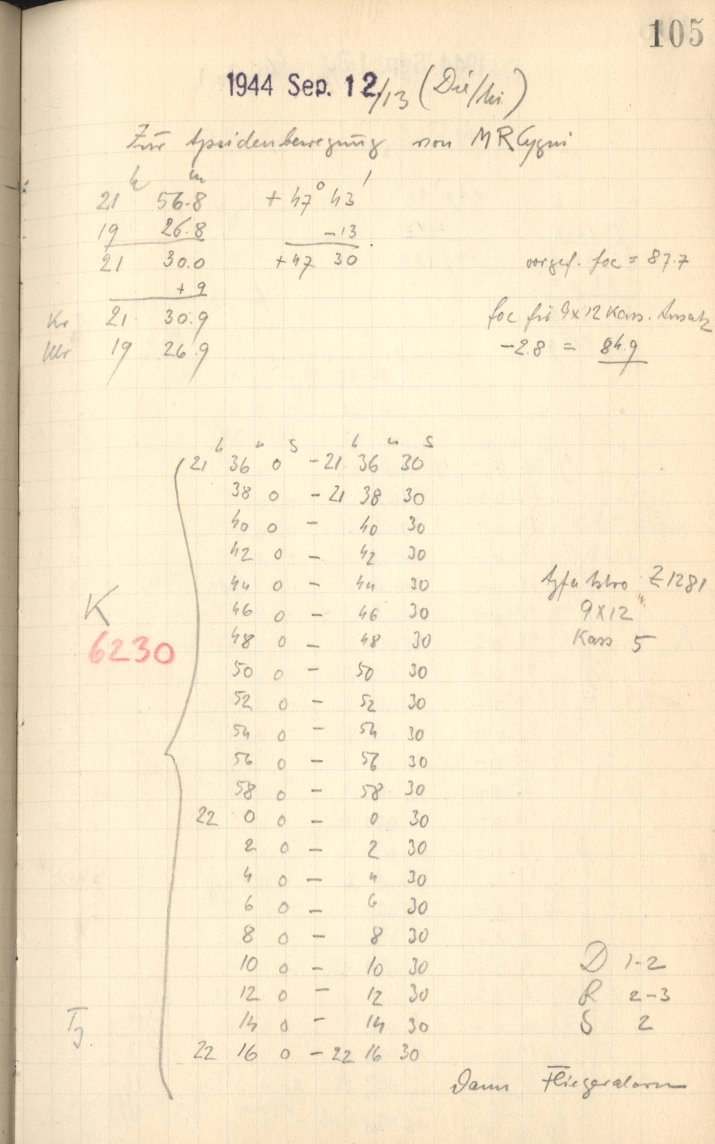 105
1944 Sep. 12/13 (Die/Mi)
Zur Apsidenbewegung von MR Cygni
h m
21 56.8 +47° 43'
19 26.8 -13
21 30.0 +47 30
vorgef. foc = 87.7
+9
Kr 21 30.9
foc für 9x12 Kass. Ansatz
Uhr 19 26.9
-2.8 = 84.9
h m s h m s
21 36 0 - 21 36 30
38 0 - 21 38 30
40 0 - 40 30
42 0 - 42 30
44 0 - 44 30
Agfa Astro Z1281
46 0 - 46 30
9x12
K
48 0 - 48 30
Kass 5
6230
50 0 - 50 30
52 0 - 52 30
54 0 - 54 30
56 0 - 56 30
58 0 - 58 30
22 0 0 - 0 30
2 0 - 2 30
4 0 - 4 30
6 0 - 6 30
8 0 - 8 30
10 0 - 10 30
D 1-2
12 0 - 12 30
R 2-3
14 0 - 14 30
S 2
22 16 0 - 22 16 30
Dann Fliegeralarm